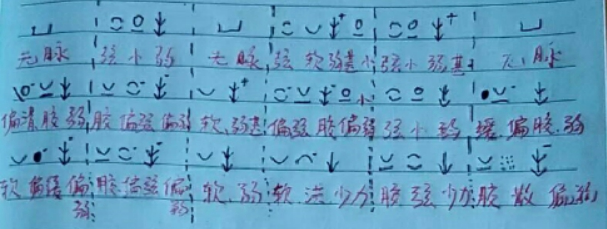 无脉 弦小弱 无脉 弦软弱甚小 弦小弱甚 无脉
偏清胶弱 胶偏弦偏弱 软弱甚 偏弦胶偏弱 弦小弱 缓偏胶弱
软偏缓偏弱 胶偏弦偏弱 软弱 软洪少力 胶弦少力 胶数偏弱